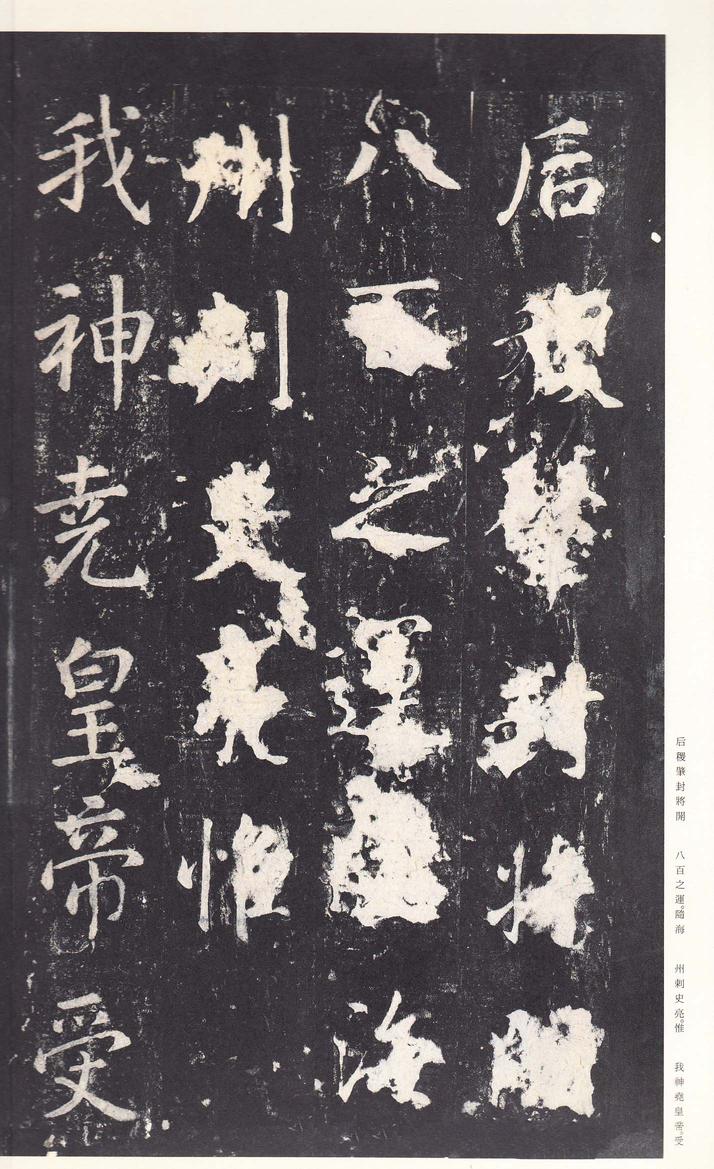 后稷肇封將開
八百之運隨海
州刺史亮惟
我神尭皇帝受
后稷肇封將開　八百之運。隨海　州刺史亮。惟　我神堯皇帝。受